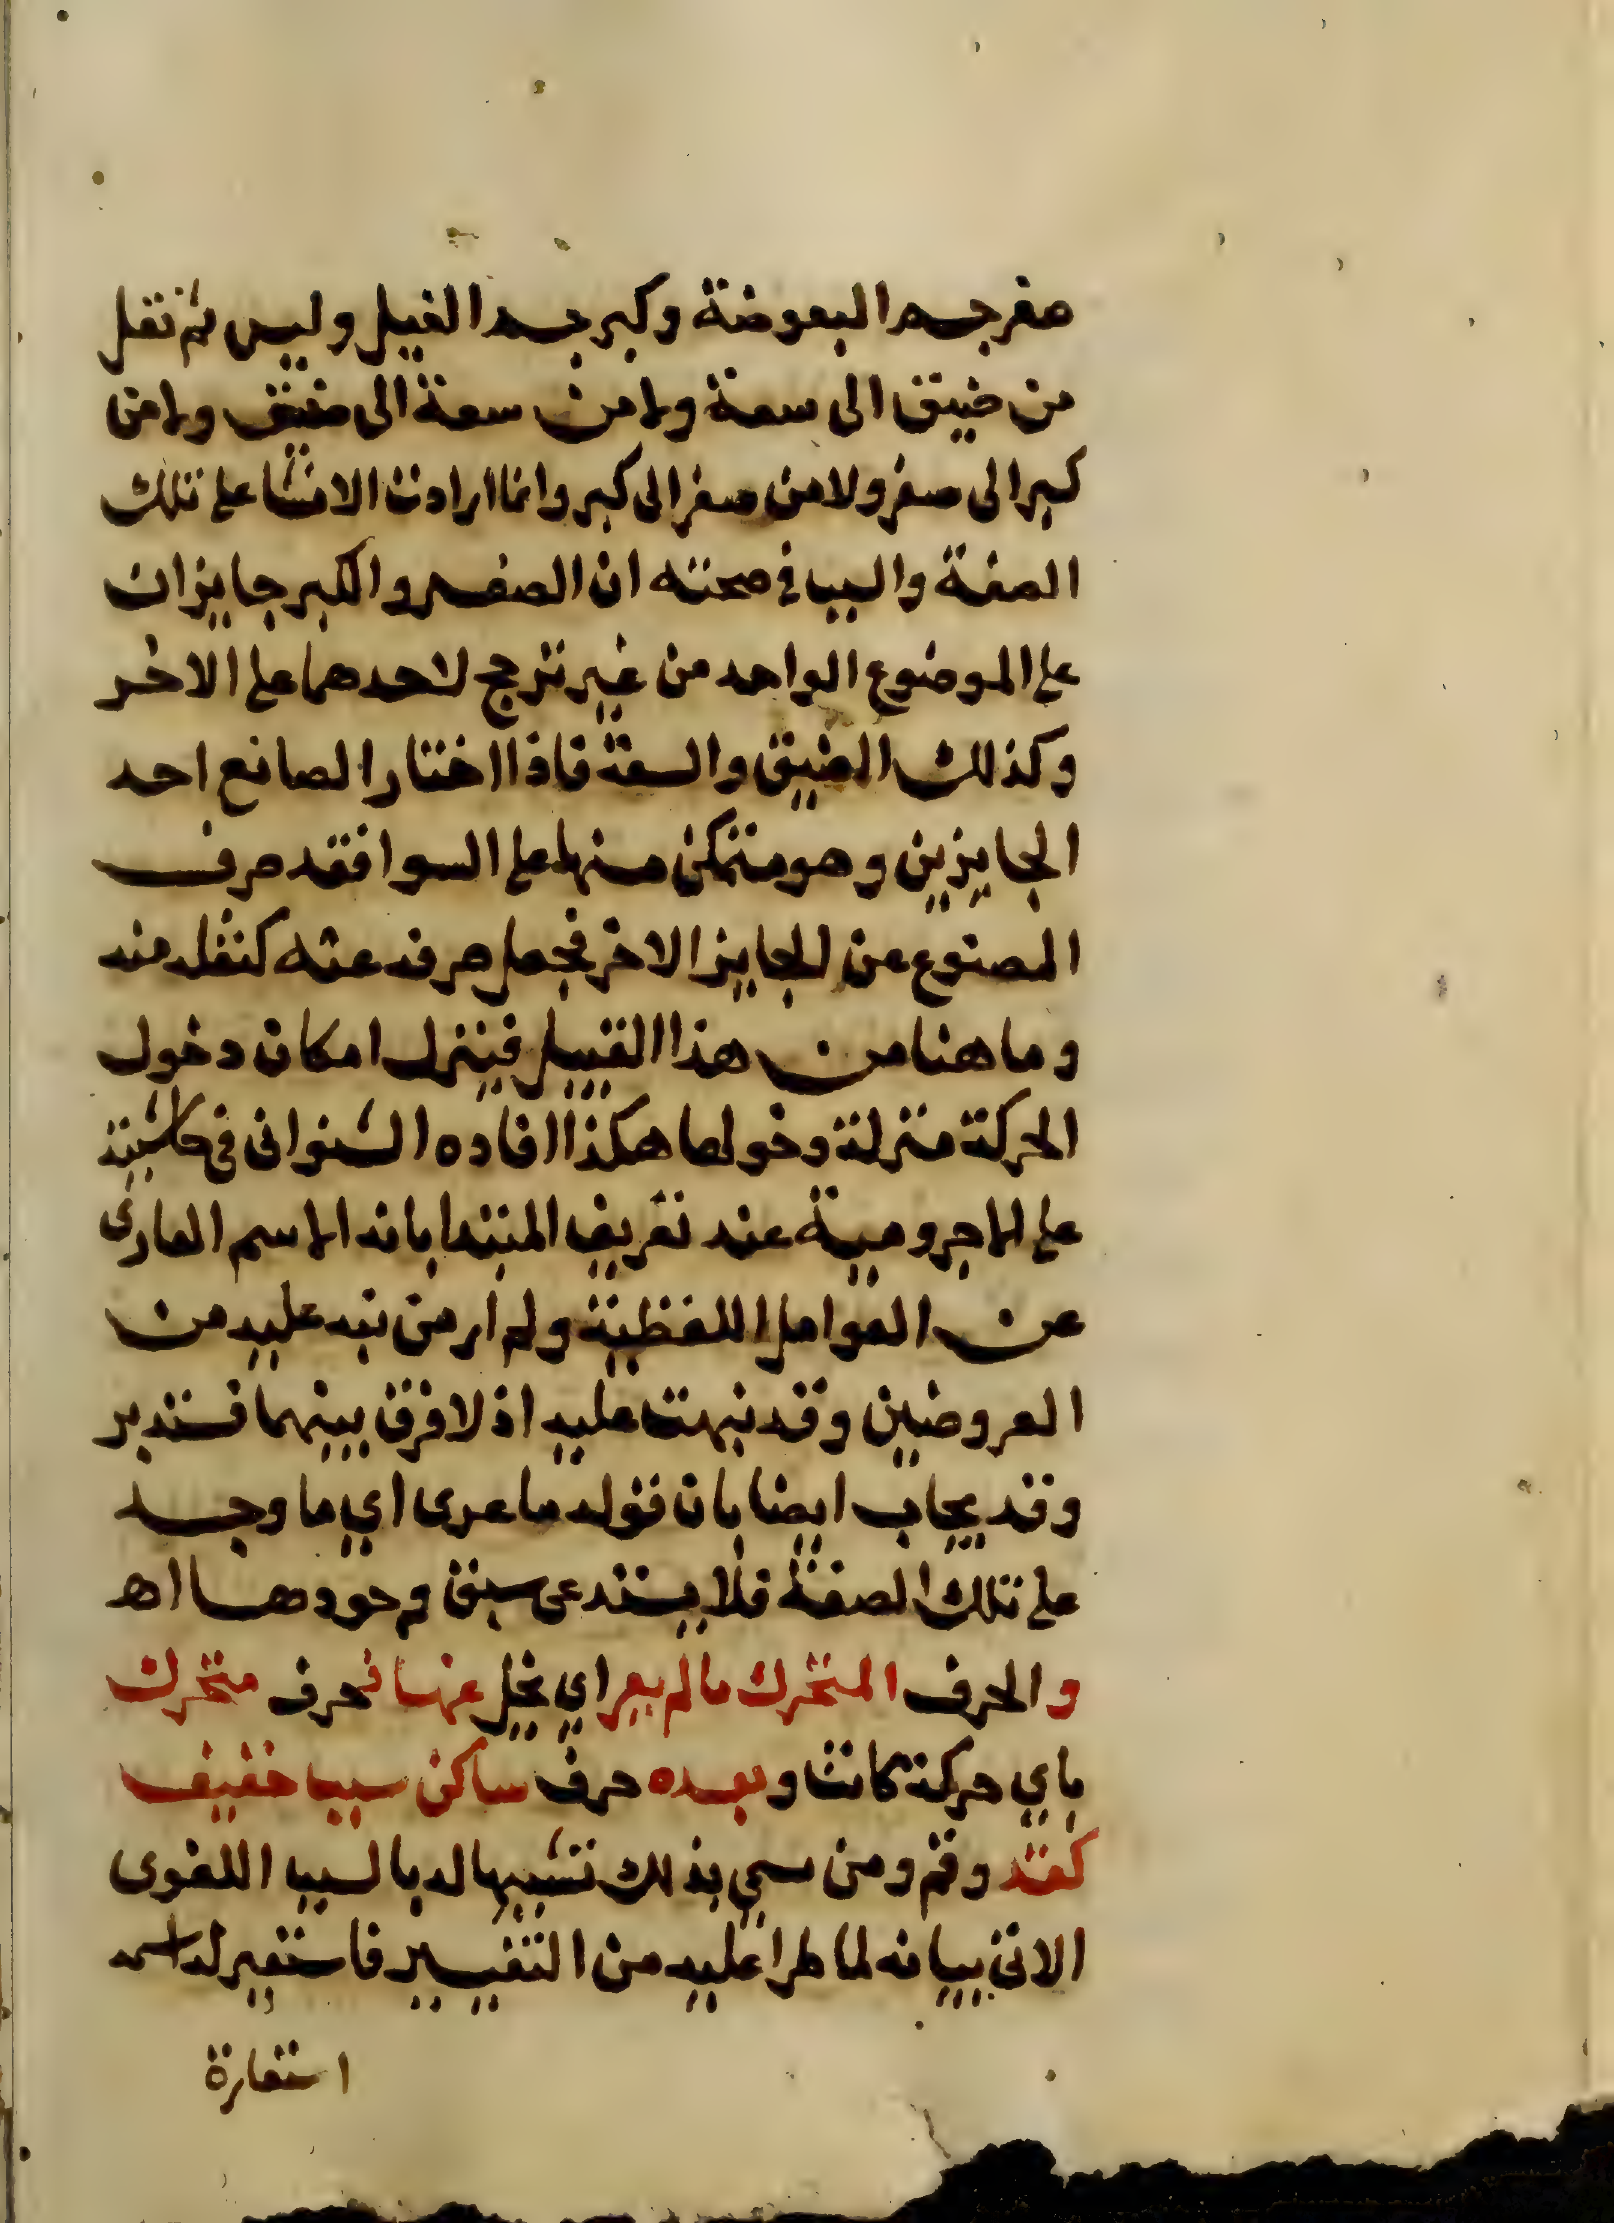 صغر جسد البعوضة وكبر جسد الفيل وليس ثم نقل
من ضيق الى سعة ولا من سعة الى ضيق ولا من
كبر الى صغر ولا من صغر الى كبر وانما اردت الانشا على تلك
الصفة والسبب في صحته ان الصغر والكبر جايزان
على الموضوع الواحد من غير ترجح لاحدهما على الاخر
وكذلك الضيق والسعة فاذا اختار الصانع احد
الجايزين وهو متمكن منهما على السوا فقد صرف
المصنوع عن الجايز الاخر فجعل صرفه عنه كنقله منه
وما هنا من هذا القبيل فينزل امكان دخول
الحركة منزلة دخولها هكذا افاده الشنوانى في حاشيته
على الاجرومية عند تعريف المبتدا بانه الاسم العارى
عن العوامل اللفظية ولم ار من نبه عليه من
العروضين وقد نبهت عليه اذ لا فرق بينهما فتدبر
وقد يجاب ايضا بان قوله ما عرى اي ما وجد
على تلك الصفة فلا يستدعى سبق وجودها اهـ
والحرف المتحرك ما لم يعر اي يخل عنها فحرف متحرك
باي حركة كانت وبعده حرف ساكن سبب خفيف
كقد وقم ومن سمي بذلك تشبيها له بالسبب اللغوى
الاتى بيانه لما طرا عليه من التغيير فاستعير له اسمه
استعارة